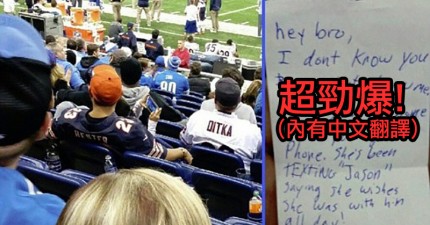 HESTER
23
DITKA
90
hey bro,
I dont know you
超勁爆!
(內有中文翻譯)
Phone. She's been
TEXTING "Jason"
saying she wishes
she was with him
all day!